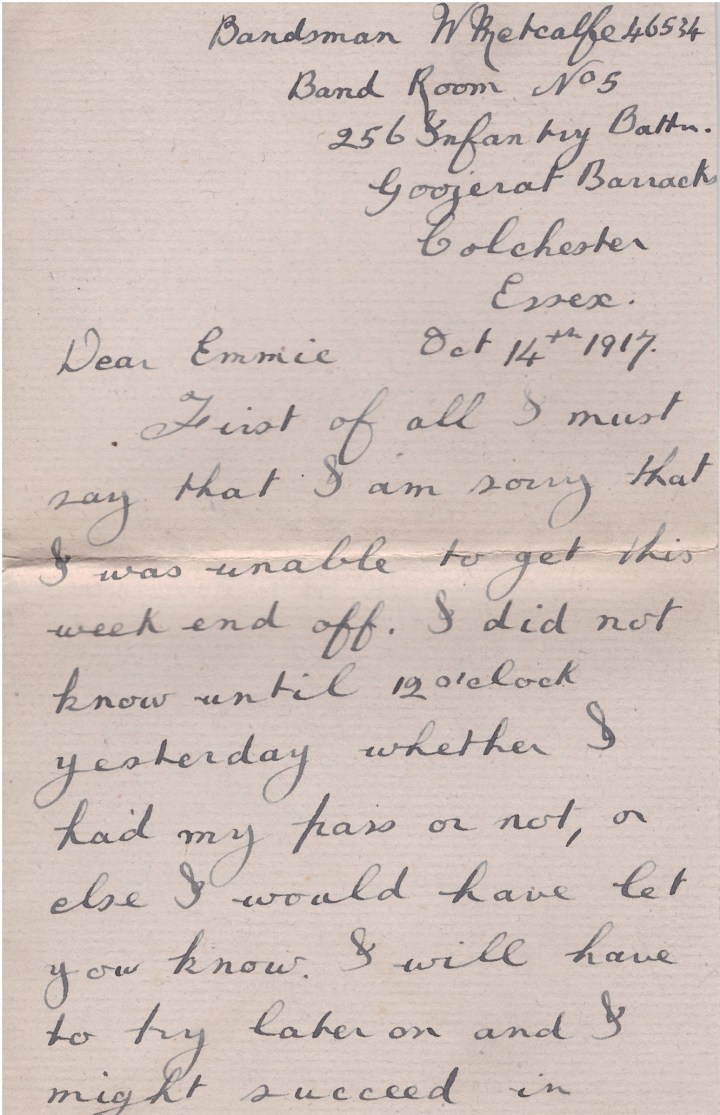 Bandsman W Metcalfe 46534
Band Room No 5
256 Infantry Battn.
Goojerat Barracks
Colchester
Essex.
Dear Emmie Oct 14th 1917.
First of all I must
say that I am sorry that
I was unable to get this
week end off. I did not
know until 12 o'clock
yesterday whether I
had my pass or not, or
else I would have let
you know. I will have
to try later on and I
might succeed in